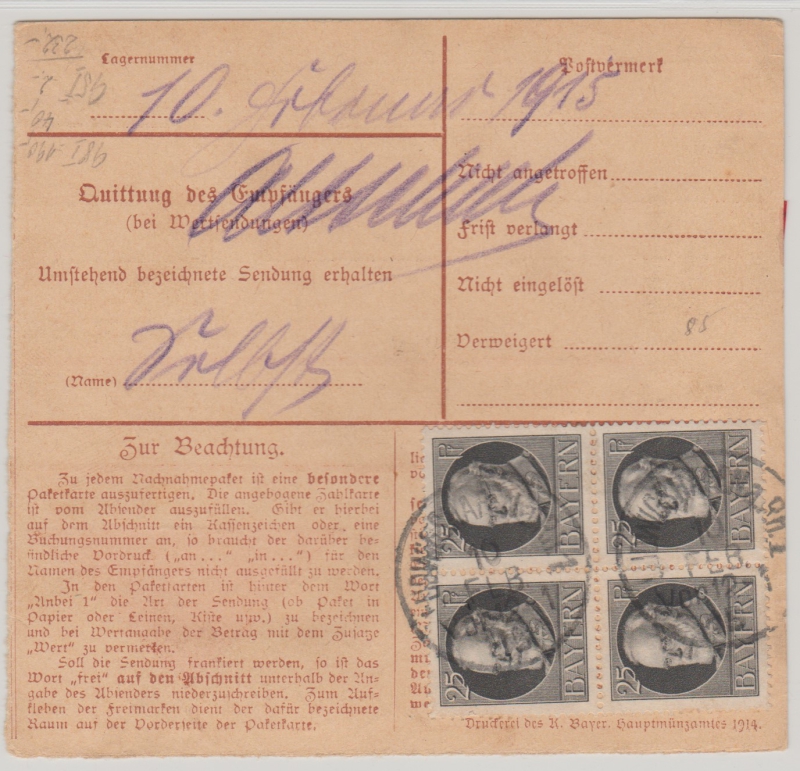 Lagernummer
10. Februar 1915
Postvermerk
Nicht angetroffen
Quittung des Empfängers
(bei Wertsendungen)
Frist verlangt
Umstehend bezeichnete Sendung erhalten
Nicht eingelöst
85
Verweigert
Selbst
(Name)
Zur Beachtung.
Zu jedem Nachnahmepaket ist eine besondere
Paketkarte auszufertigen. Die angebogene Zahlkarte
ist vom Absender auszufüllen. Gibt er hierbei
auf dem Abschnitt ein Kassenzeichen oder eine
Buchungsnummer an, so braucht der darüber be-
findliche Vordruck („an...“ „in...“) für den
Namen des Empfängers nicht ausgefüllt zu werden.
In den Paketkarten ist hinter dem Wort
„Anbei 1“ die Art der Sendung (ob Paket in
Papier oder Leinen, Kiste usw.) zu bezeichnen
und bei Wertangabe der Betrag mit dem Zusatze
„Wert“ zu vermerken.
Soll die Sendung frankiert werden, so ist das
Wort „frei“ auf den Abschnitt unterhalb der An-
gabe des Absenders niederzuschreiben. Zum Auf-
kleben der Freimarken dient der dafür bezeichnete
Raum auf der Vorderseite der Paketkarte.
25 Pf BAYERN
25 Pf BAYERN
25 BAYERN
25 BAYERN
10 FEB
FEB
Druckerei des K. Bayer. Hauptmünzamtes 1914.